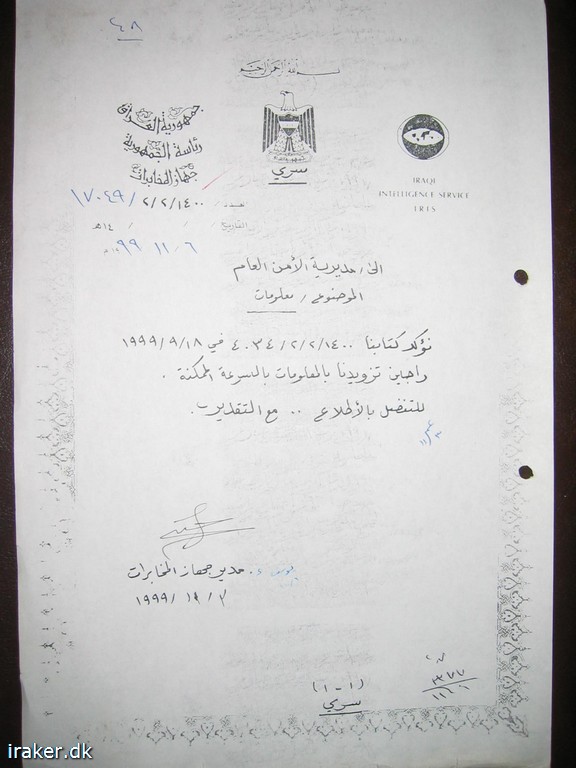 ٤٨
بسم الله الرحمن الرحيم
جمهورية العراق
رئاسة الجمهورية
جهاز المخابرات
سري
IRAQI
INTELLIGENCE SERVICE
I.R.I.S
العدد / ٢/٢/١٤٠٠ / ١٧٠٤٩
التاريخ / / ١٤هـ
٦ / ١١ / ٩٩
الى / مديرية الأمن العام
الموضوع / معلومات
نؤكد كتابنا ٤٠٣٤/٢/٢/١٤٠٠ في ١٩٩٩/٩/١٨
راجين تزويدنا بالمعلومات بالسرعة الممكنة .
للتفضل بالأطلاع .. مع التقدير .
ع. مدير جهاز المخابرات
١٩٩٩/١١/٢
(١-١)
سري
iraker.dk